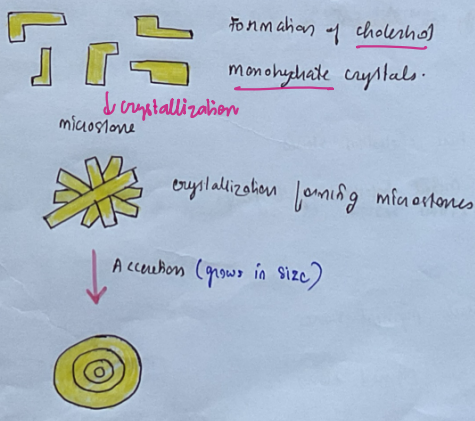 Formation of cholestrol
monohydrate crystals.
↓ crystallization
microstone
crystallization forming microstones
Accretion (grows in size)